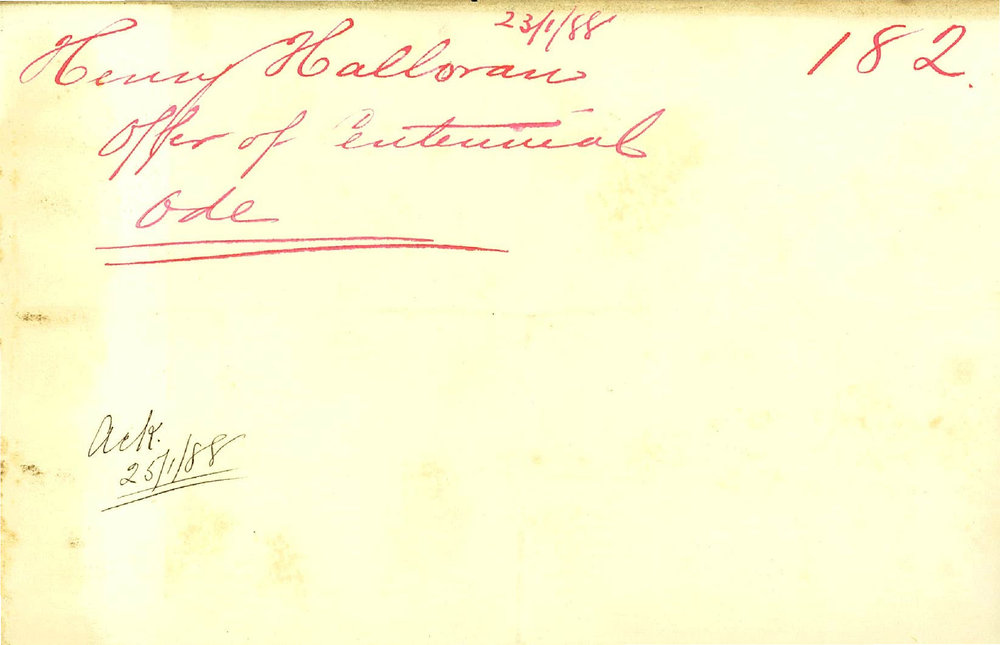 23/1/88
Henry Halloran 182.
Offer of Centennial
Ode
Ack.
25/1/88